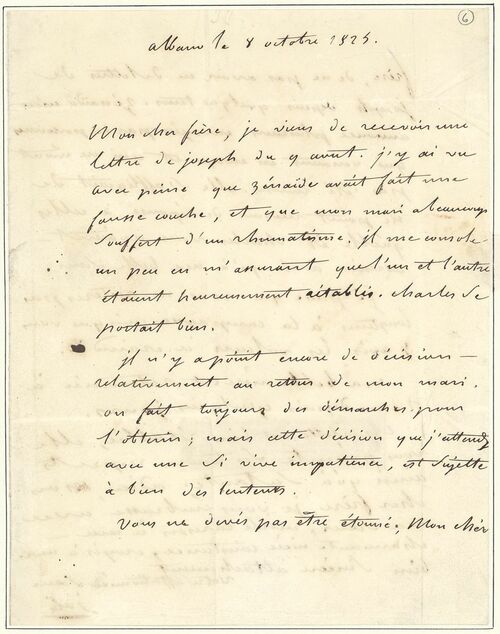 6
albano le 8 octobre 1825.
Mon cher frère, je viens de recevoir une
lettre de joseph du 9 aout. j'y ai vu
avec peine que zénaïde avait fait une
fausse couche, et que mon mari a beaucoup
souffert d'un rhumatisme. jl me console
un peu en m'assurant que l'un et l'autre
étaient heureusement rétablis. charles se
portait bien.
jl n'y a point encore de décision
relativement au retour de mon mari.
on fait toujours des démarches pour
l'obtenir; mais cette décision que j'attends
avec une si vive impatience, est sujette
à bien des lenteurs.
Vous ne devés pas être étonné, Mon cher